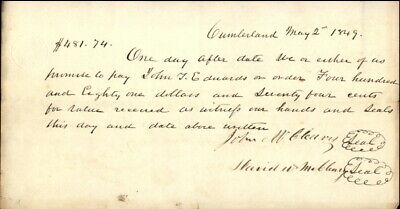 Cumberland May 2d 1849.
$481.74.
One day after date we or either of us
promise to pay John T. Edwards on order Four hundred
and Eighty one dollars and Seventy four cents
for value received as witness our hands and Seals
this day and date above written
John McCleary Seal
David W McCleary Seal